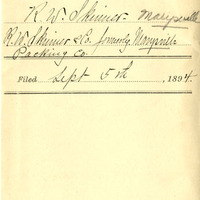 R. W. Skinner - Marysville
R. W. Skinner & Co. formerly Marysville
Packing Co.
Filed Sept 5th, 1894.